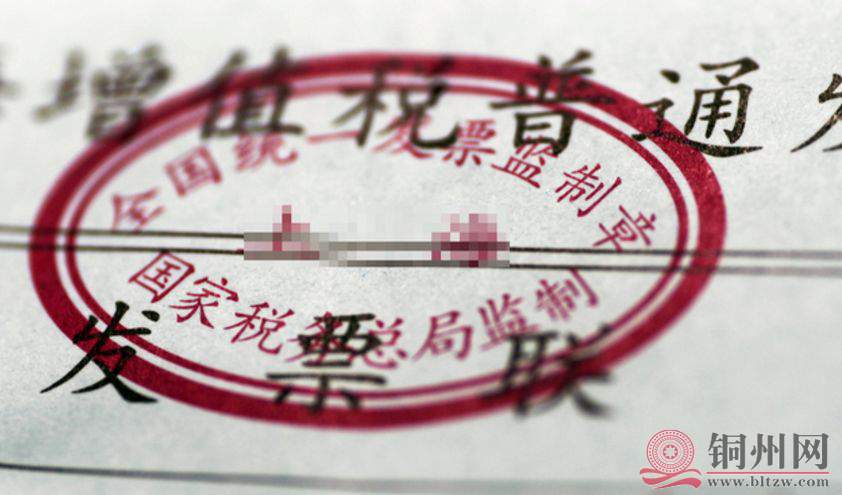 增值税普通发
全国统一发票监制章
国家税务总局监制
发票联
铜州网
www.bltzw.com